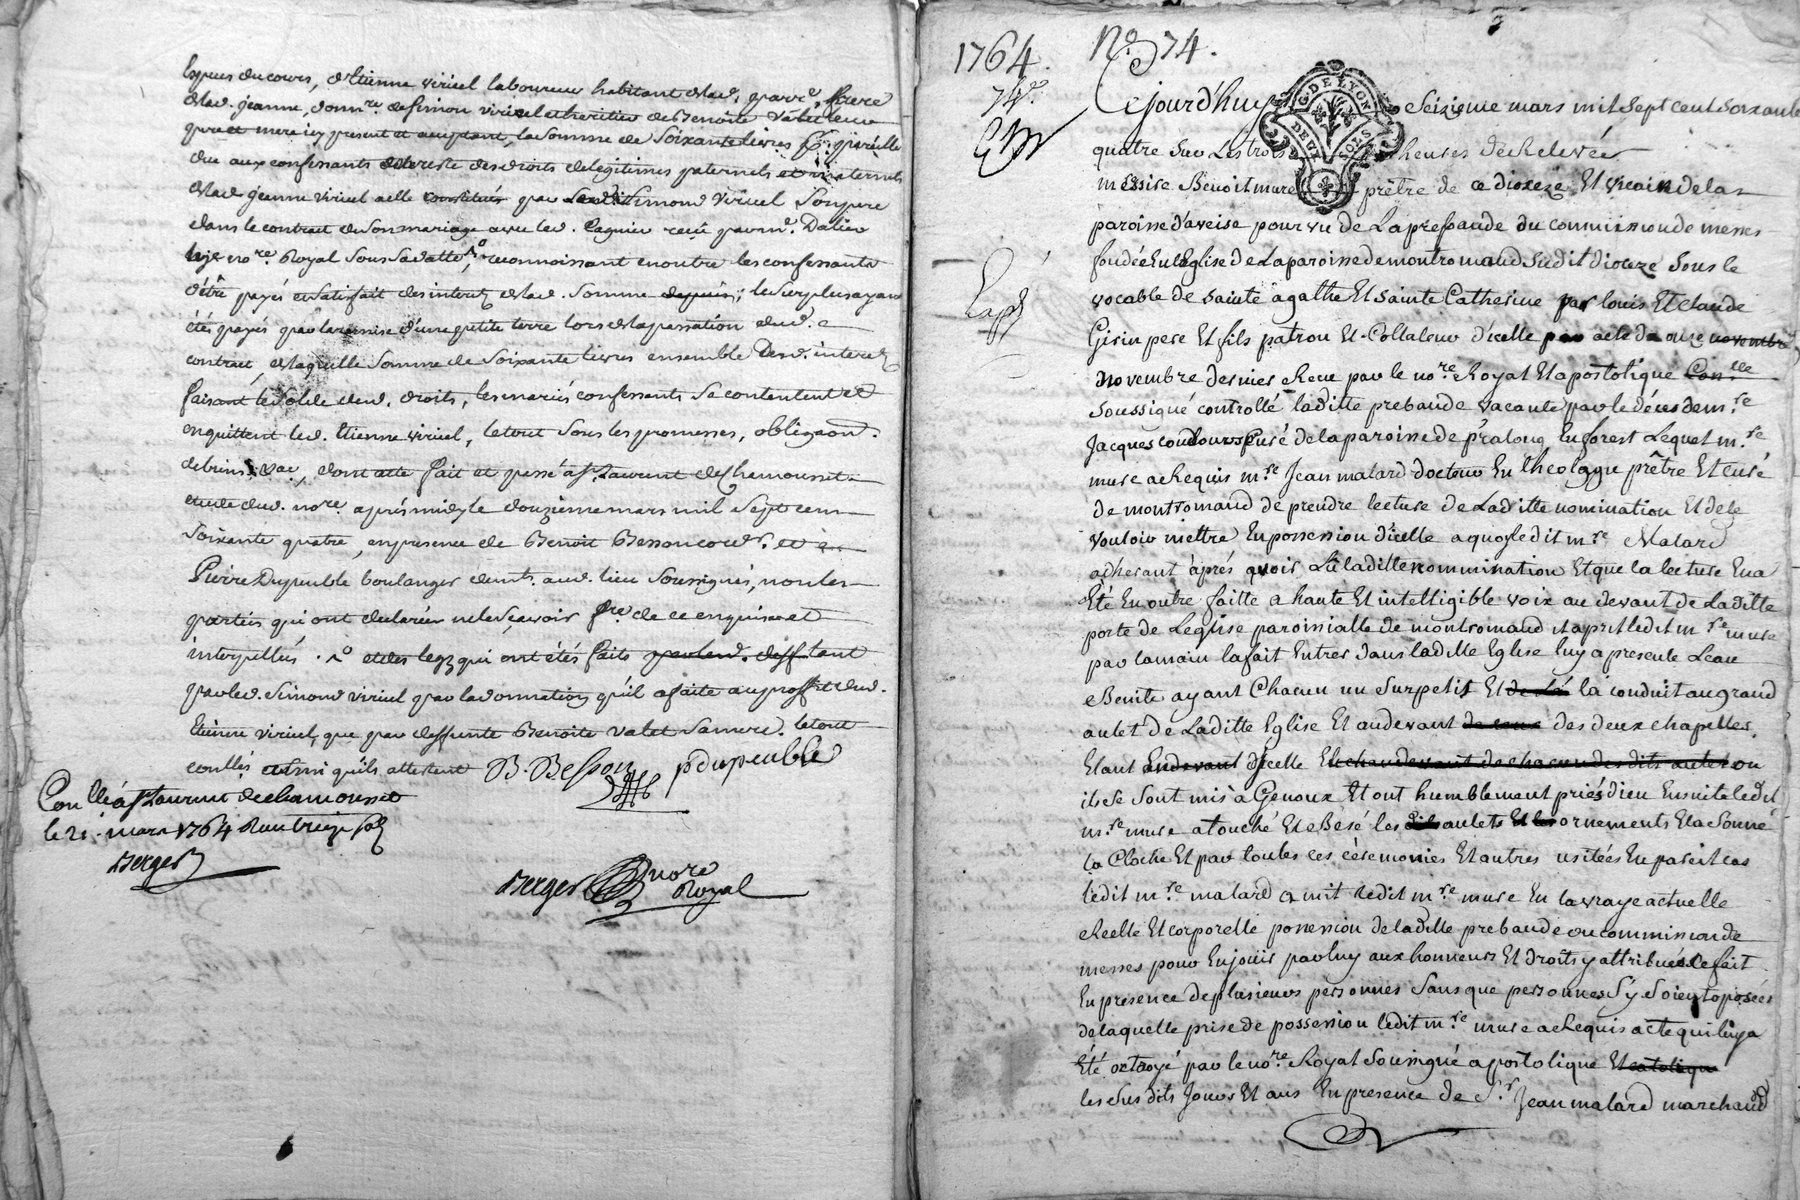 Espues du cours, d'Etienne viricel laboureur habitant de lad. parr.e, frere
de lad. jeanne, donn.re de Simon viricel et heritier de Benoite Valet leur
pere et mere icy present et acceptant, la Somme de Soixante livres pareille
due aux confessants de reste des droits de legitimes paternels et maternels
de lad. jeanne viricel a elle constitués par Simond viricel Son pere
dans le contrat de Son mariage avec led. Pagnier receu par m.e Dalier
no.re Royal Sous Sa datte, reconnoissant en outre les confessants
d'être payés et Satisfait des interetz de lad. Somme depuis; le Surplus ayant
étés payés par la remise d'une petite terre lors de la passation dud.
contrat, de laquelle Somme de Soixante livres ensemble Desd. interetz
faisant le Solde desd. droits, les mariés confessants Se contentent et
en quittent led. Etienne viricel, le tout Sous les promesses, obligaon.
de biens, dont acte fait et passé à St Laurent de Chamousset
etude dud. no.re après midy le douzième mars mil Sept cent
Soixante quatre, en presence de Benoit Besson cord.r et
Pierre Dupeuble boulanger demt. aud. lieu Soussignés, non les
parties qui ont declarées ne le Sçavoir f.re de ce enquises et
interpellés. et des legz qui ont étés faits tant
par led. Simond viricel par la donnation qu'il a faite au proffit dud.
Etienne viricel, que par deffunte Benoite valet Sa mere. le tout
contlés ainsi qu'ils attestent B. Besson pdupeuble
Con.llé à St Laurent de chamousset
le 21. mars 1764 Reçu treize Sols
Berger
Berger nore Royal
1764. No. 74.
Cejourd'huy Seizieme mars mil sept cent soixante
G. DE LYON DEUX SOLS
quatre Sur Les trois heures de Relevée
messire Benoit mure prêtre de ce dioceze Et vicaire de la
paroisse d'aveise pourvu de La prebande du commission de messes
fondée En l'Eglise de La paroisse de montromand Sudit dioceze Sous le
vocable de sainte agathe Et sainte Catherine par louis Et claude
Girin pere Et fils patron Et Collateur d'icelle par acte du onze novembre
novembre dernier Receu par le no.re Royal Et apostolique Con.lle
Soussigné controllé laditte prebande vacante par le décés de m.re
Jacques coudour Curé de la paroisse de pralong En forest Lequel m.re
mure a Requis m.re Jean malard docteur En theologie prêtre Et curé
de montromand de prendre lecture de Laditte nomination Et de le
vouloir mettre En possession d'icelle a quoy ledit m.re Malard
adherant après avoir Lû laditte nommination Et que la lecture En a
Eté En outre faitte a haute Et intelligible voix au devant de Laditte
porte de Leglise paroissialle de montromand il a pris ledit m.re mure
par la main la fait Entrer dans laditte Eglise luy a presenté Leau
Benite ayant Chacun un Surpelit Et de Là la conduit au grand
autel de Laditte Eglise Et au devant des deux chapelles.
Etant Audevant d'icelle Et chaudevant de chacun desdits autels ou
ils Se Sont mis à Genoux Et ont humblement priés dieu Ensuite ledit
m.re mure a touché Et Besé les dits autels Et les ornements Et a Sonné
la Cloche Et par toutes ces cèremonies Et autres usitées En pareil cas
ledit m.re malard a mit ledit m.re mure En la vraye actuelle
Reelle Et corporelle possession de laditte prebande ou commission de
messes pour En jouir par luy aux honneurs Et droits y attribués Ce fait
En presence de plusieurs personnes Sans que personnes S'y Soient oposées
de laquelle prise de possession ledit m.re mure a Requis acte qui luy a
Eté octroyé par le no.re Royal Soussigné apostolique Et catolique
les Susdits Jours Et ans En presence de S.r Jean malard marchand